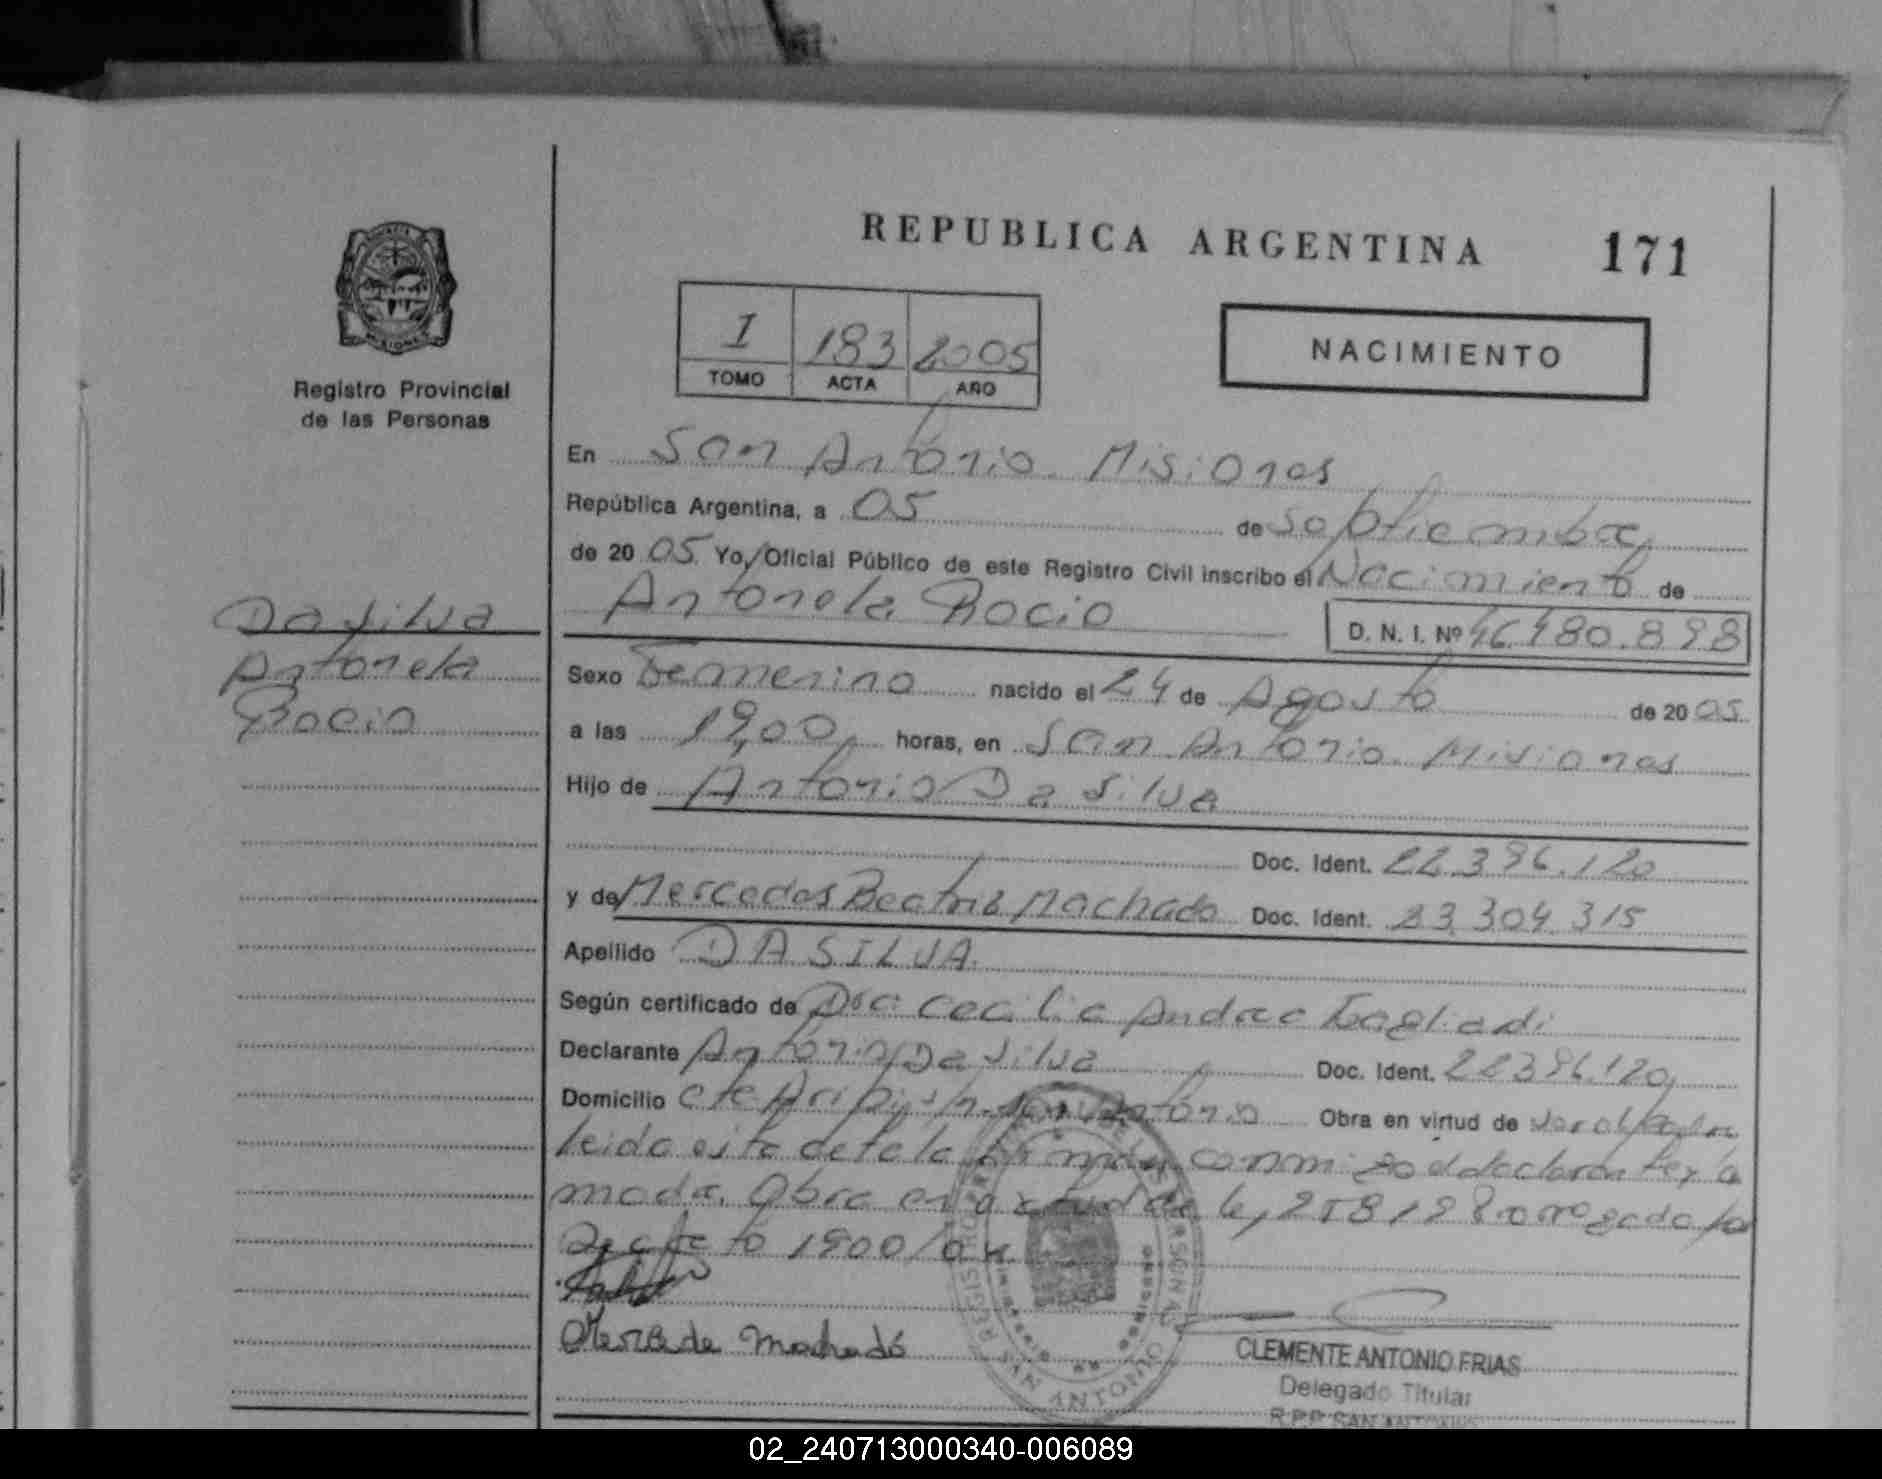 REPUBLICA ARGENTINA 171
Registro Provincial
de las Personas
I 183 2005
TOMO ACTA AÑO
NACIMIENTO
En San Antonio Misiones
República Argentina, a 05 de Septiembre
de 20 05 Yo, Oficial Público de este Registro Civil inscribo el Nacimiento de
Antonela Rocio D. N. I. Nº 46.480.898
Da Silva
Antonela
Rocio
Sexo Femenino nacido el 24 de Agosto de 20 05
a las 19,00 horas, en San Antonio Misiones
Hijo de Antonio Da Silva
Doc. Ident. 22.396.120
y de Mercedes Beatris Machado Doc. Ident. 23.304.315
Apellido DA SILVA
Según certificado de Dra Cecilia Andrea
Declarante Antonio Da Silva Doc. Ident. 22396.120
Domicilio s/n. San Antonio Obra en virtud de
leida esta acta la firman conmigo el declarante y la
madre. Obra en virtud de
Decreto 1900/04
Mercede Machado
CLEMENTE ANTONIO FRIAS
Delegado Titular
R.P.P. SAN ANTONIO
02_240713000340-006089